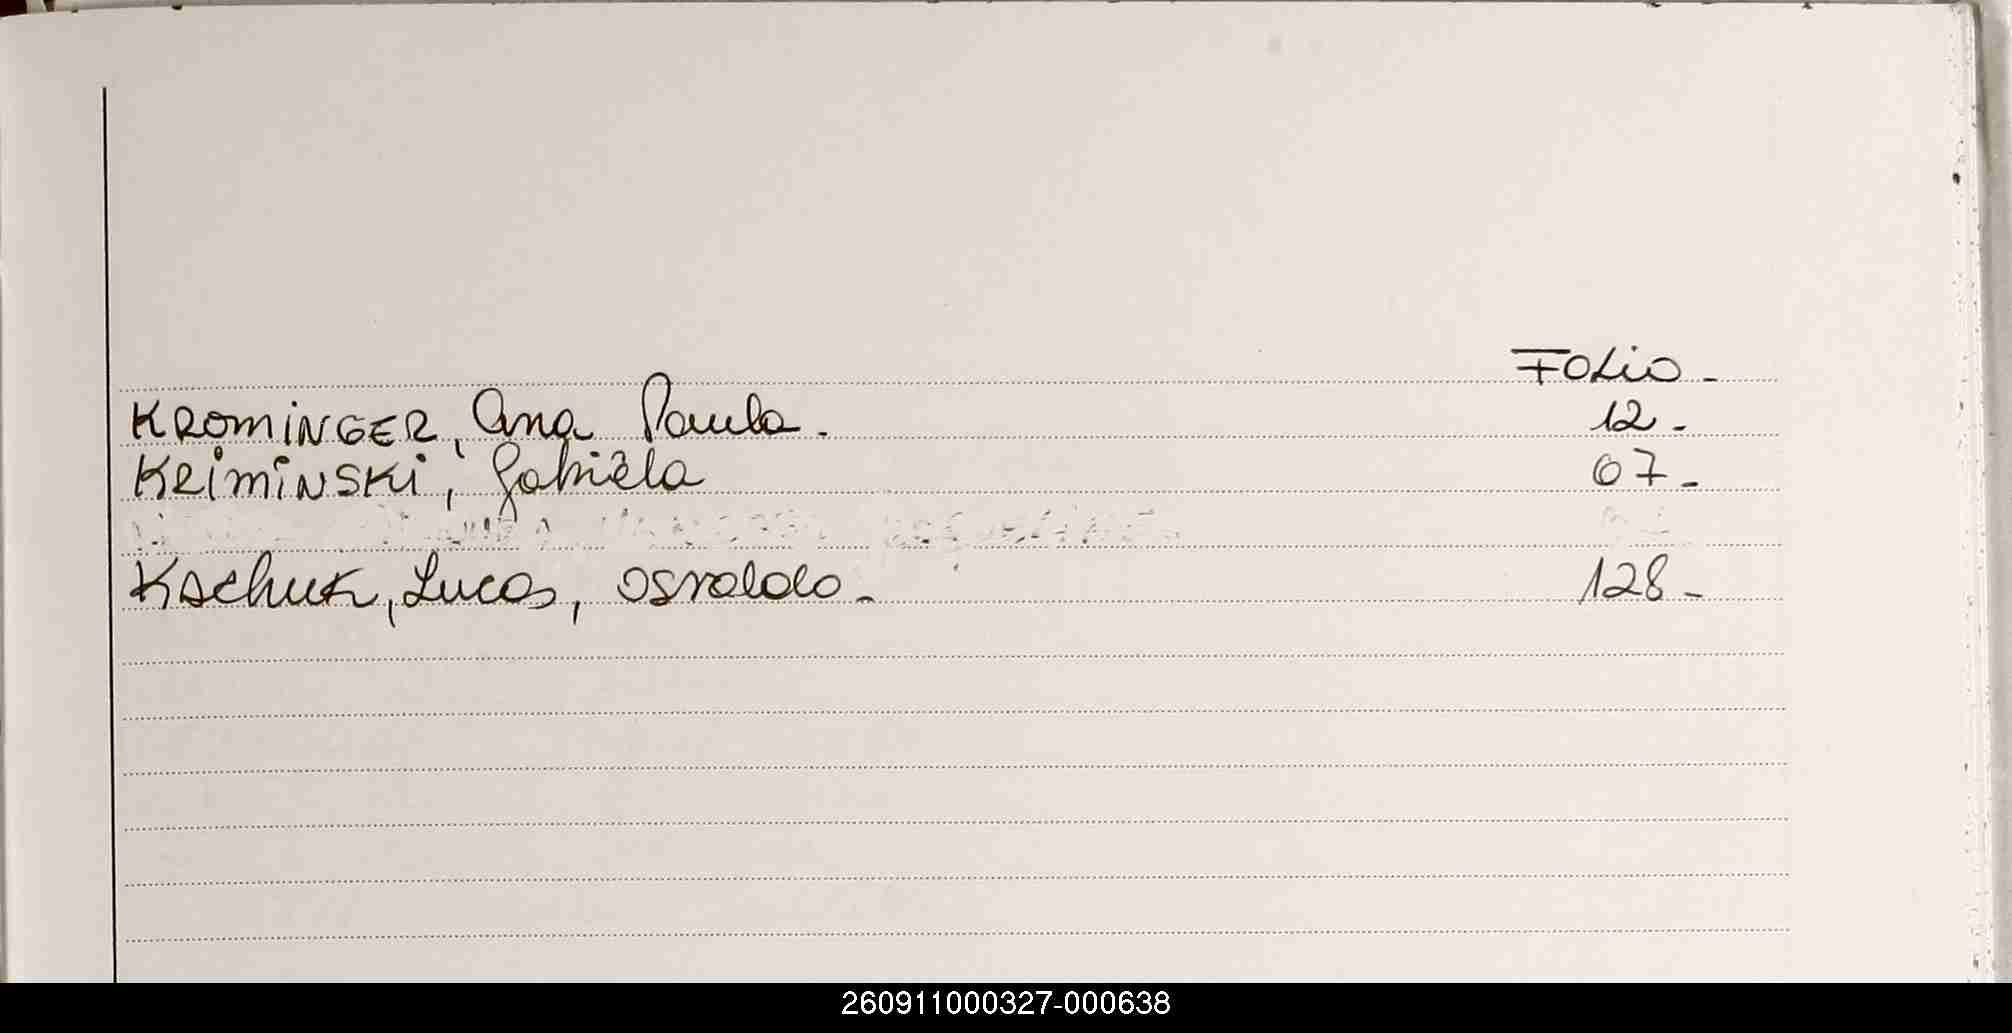 Folio -
KROMINGER, Ana Paula. 12 -
KRIMINSKI, Gabriela 07 -
Kachuk, Lucas, Osvaldo - 128 -
260911000327-000638